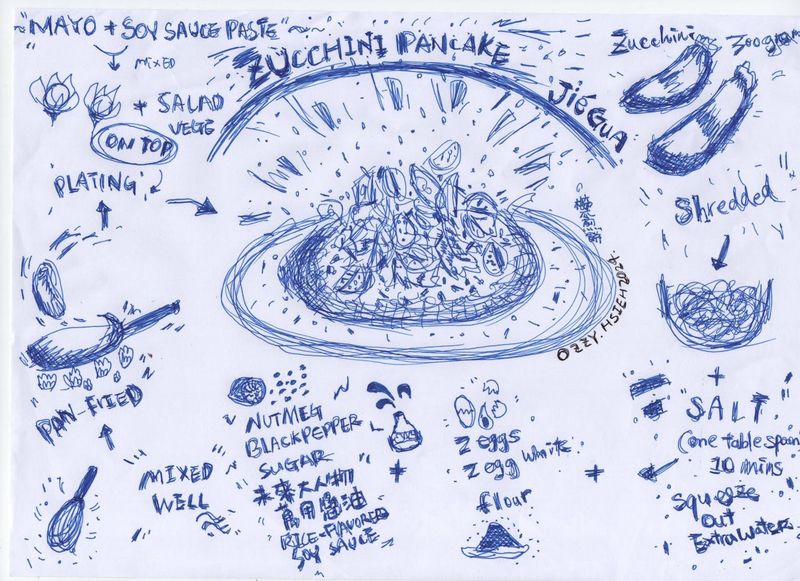 "MAYO + SOY SAUCE PASTE"
MIXED
+ SALAD
VEGE
ON TOP
PLATING
ZUCCHINI PANCAKE
JiéGUA
Zucchini
Shredded
OZZY. HSIEH 2024.
+
"SALT"
(one table spoon)
10 mins
squeeze
out
Extra water
+
2 eggs
2 egg white
flour
+
NUTMEG
BLACKPEPPER
SUGAR
未來大人物
萬用醬油
RICE-FLAVORED
SOY SAUCE
MIXED
WELL
PAN-FRIED